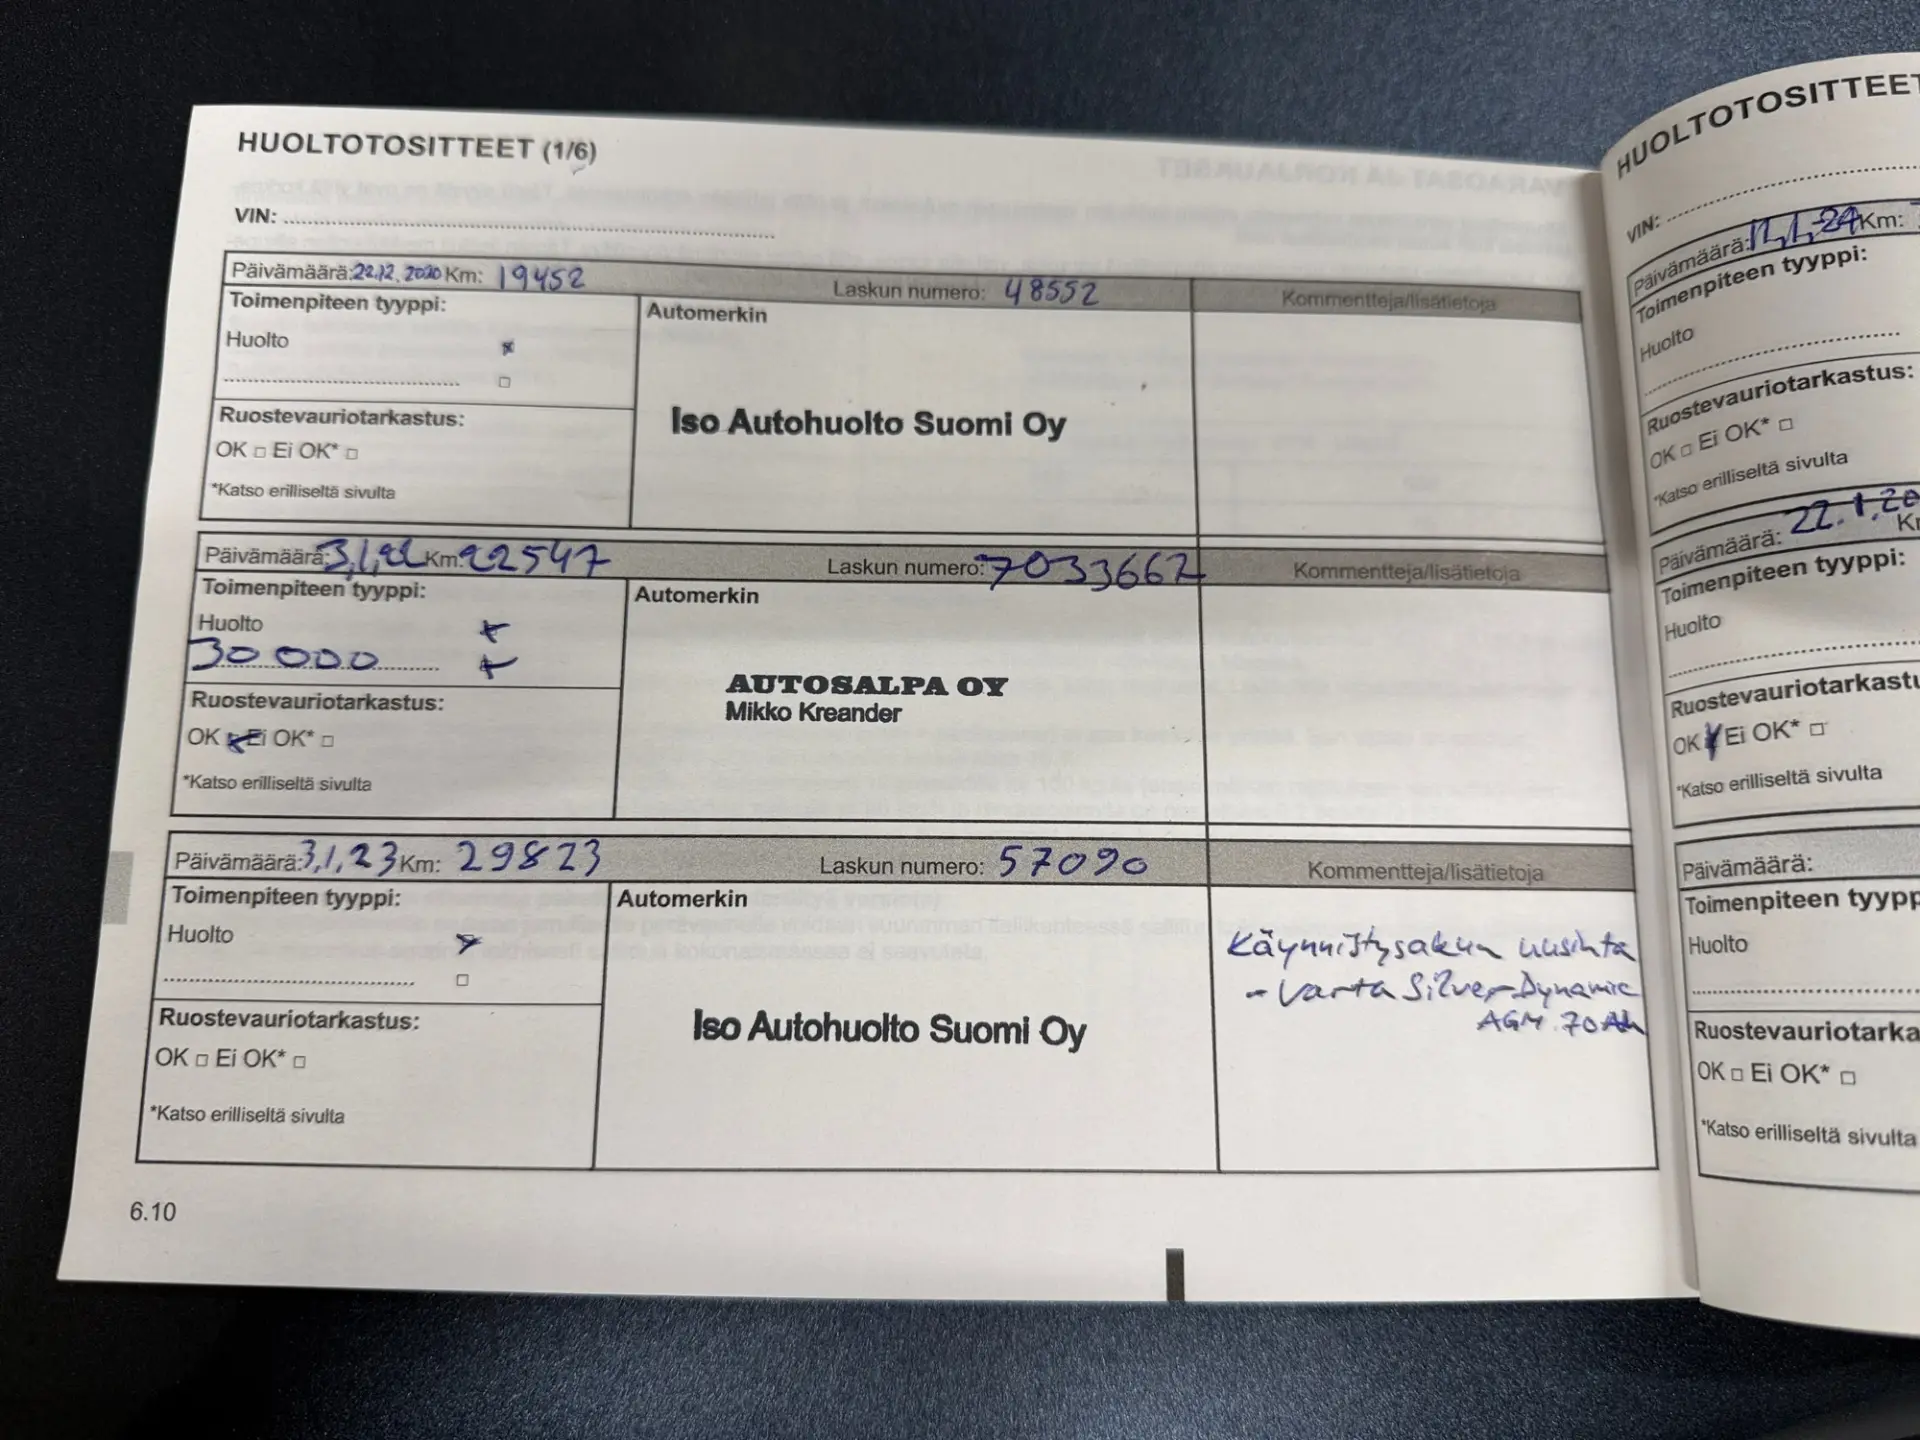 HUOLTOTOSITTEET (1/6)
VIN:
Päivämäärä: 22.12.2020 Km: 19452 Laskun numero: 48552 Kommentteja/lisätietoja
Toimenpiteen tyyppi:
Automerkin
Huolto
Iso Autohuolto Suomi Oy
Ruostevauriotarkastus:
OK □ Ei OK* □
*Katso erilliseltä sivulta
Päivämäärä: 3,1,22 Km: 22547 Laskun numero: 7033662 Kommentteja/lisätietoja
Toimenpiteen tyyppi:
Automerkin
Huolto
30 000
AUTOSALPA OY
Mikko Kreander
Ruostevauriotarkastus:
OK Ei OK* □
*Katso erilliseltä sivulta
Päivämäärä: 3,1,23 Km: 29823 Laskun numero: 57090 Kommentteja/lisätietoja
Toimenpiteen tyyppi:
Automerkin
Huolto
Käynnistysakun uusinta
- Varta Silver Dynamic
AGM 70Ah
Iso Autohuolto Suomi Oy
Ruostevauriotarkastus:
OK □ Ei OK* □
*Katso erilliseltä sivulta
6.10
HUOLTOTOSITTEET
VIN:
Päivämäärä: Km:
Toimenpiteen tyyppi:
Huolto
Ruostevauriotarkastus:
OK □ Ei OK* □
*Katso erilliseltä sivulta
Päivämäärä: 22.1.20
Toimenpiteen tyyppi:
Huolto
Ruostevauriotarkastu
OK Ei OK* □
*Katso erilliseltä sivulta
Päivämäärä:
Toimenpiteen typp
Huolto
Ruostevauriotarka
OK □ Ei OK* □
*Katso erilliseltä sivulta